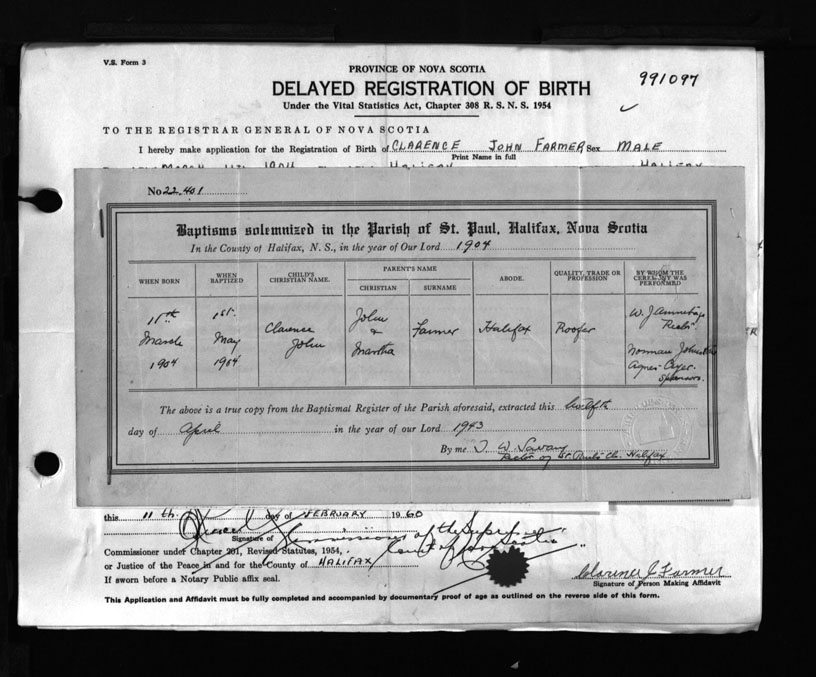 V.S. Form 3
PROVINCE OF NOVA SCOTIA
DELAYED REGISTRATION OF BIRTH
Under the Vital Statistics Act, Chapter 308 R. S. N. S. 1954
991097
TO THE REGISTRAR GENERAL OF NOVA SCOTIA
I hereby make application for the Registration of Birth of CLARENCE JOHN FARMER Sex MALE
Print Name in full
No 22.401
Baptisms solemnized in the Parish of St. Paul, Halifax, Nova Scotia
In the County of Halifax, N. S., in the year of Our Lord 1904
WHEN BORN
WHEN BAPTIZED
CHILD'S CHRISTIAN NAME.
PARENT'S NAME
CHRISTIAN
SURNAME
ABODE.
QUALITY, TRADE OR PROFESSION
BY WHOM THE CEREMONY WAS PERFORMED
11th March 1904
1st May 1904
Clarence John
John & Martha
Farmer
Halifax
Roofer
W. J. Armitage Rector
Norman
Agnes
Sponsors.
The above is a true copy from the Baptismal Register of the Parish aforesaid, extracted this twelfth
day of April in the year of our Lord 1943
By me T. W. Savary
Rector of St. Paul's Ch. Halifax.
this 11th. day of FEBRUARY 1960
Signature of
Commissioner under Chapter 201, Revised Statutes, 1954,
or Justice of the Peace in and for the County of HALIFAX
If sworn before a Notary Public affix seal.
Clarence J Farmer
Signature of Person Making Affidavit
This Application and Affidavit must be fully completed and accompanied by documentary proof of age as outlined on the reverse side of this form.